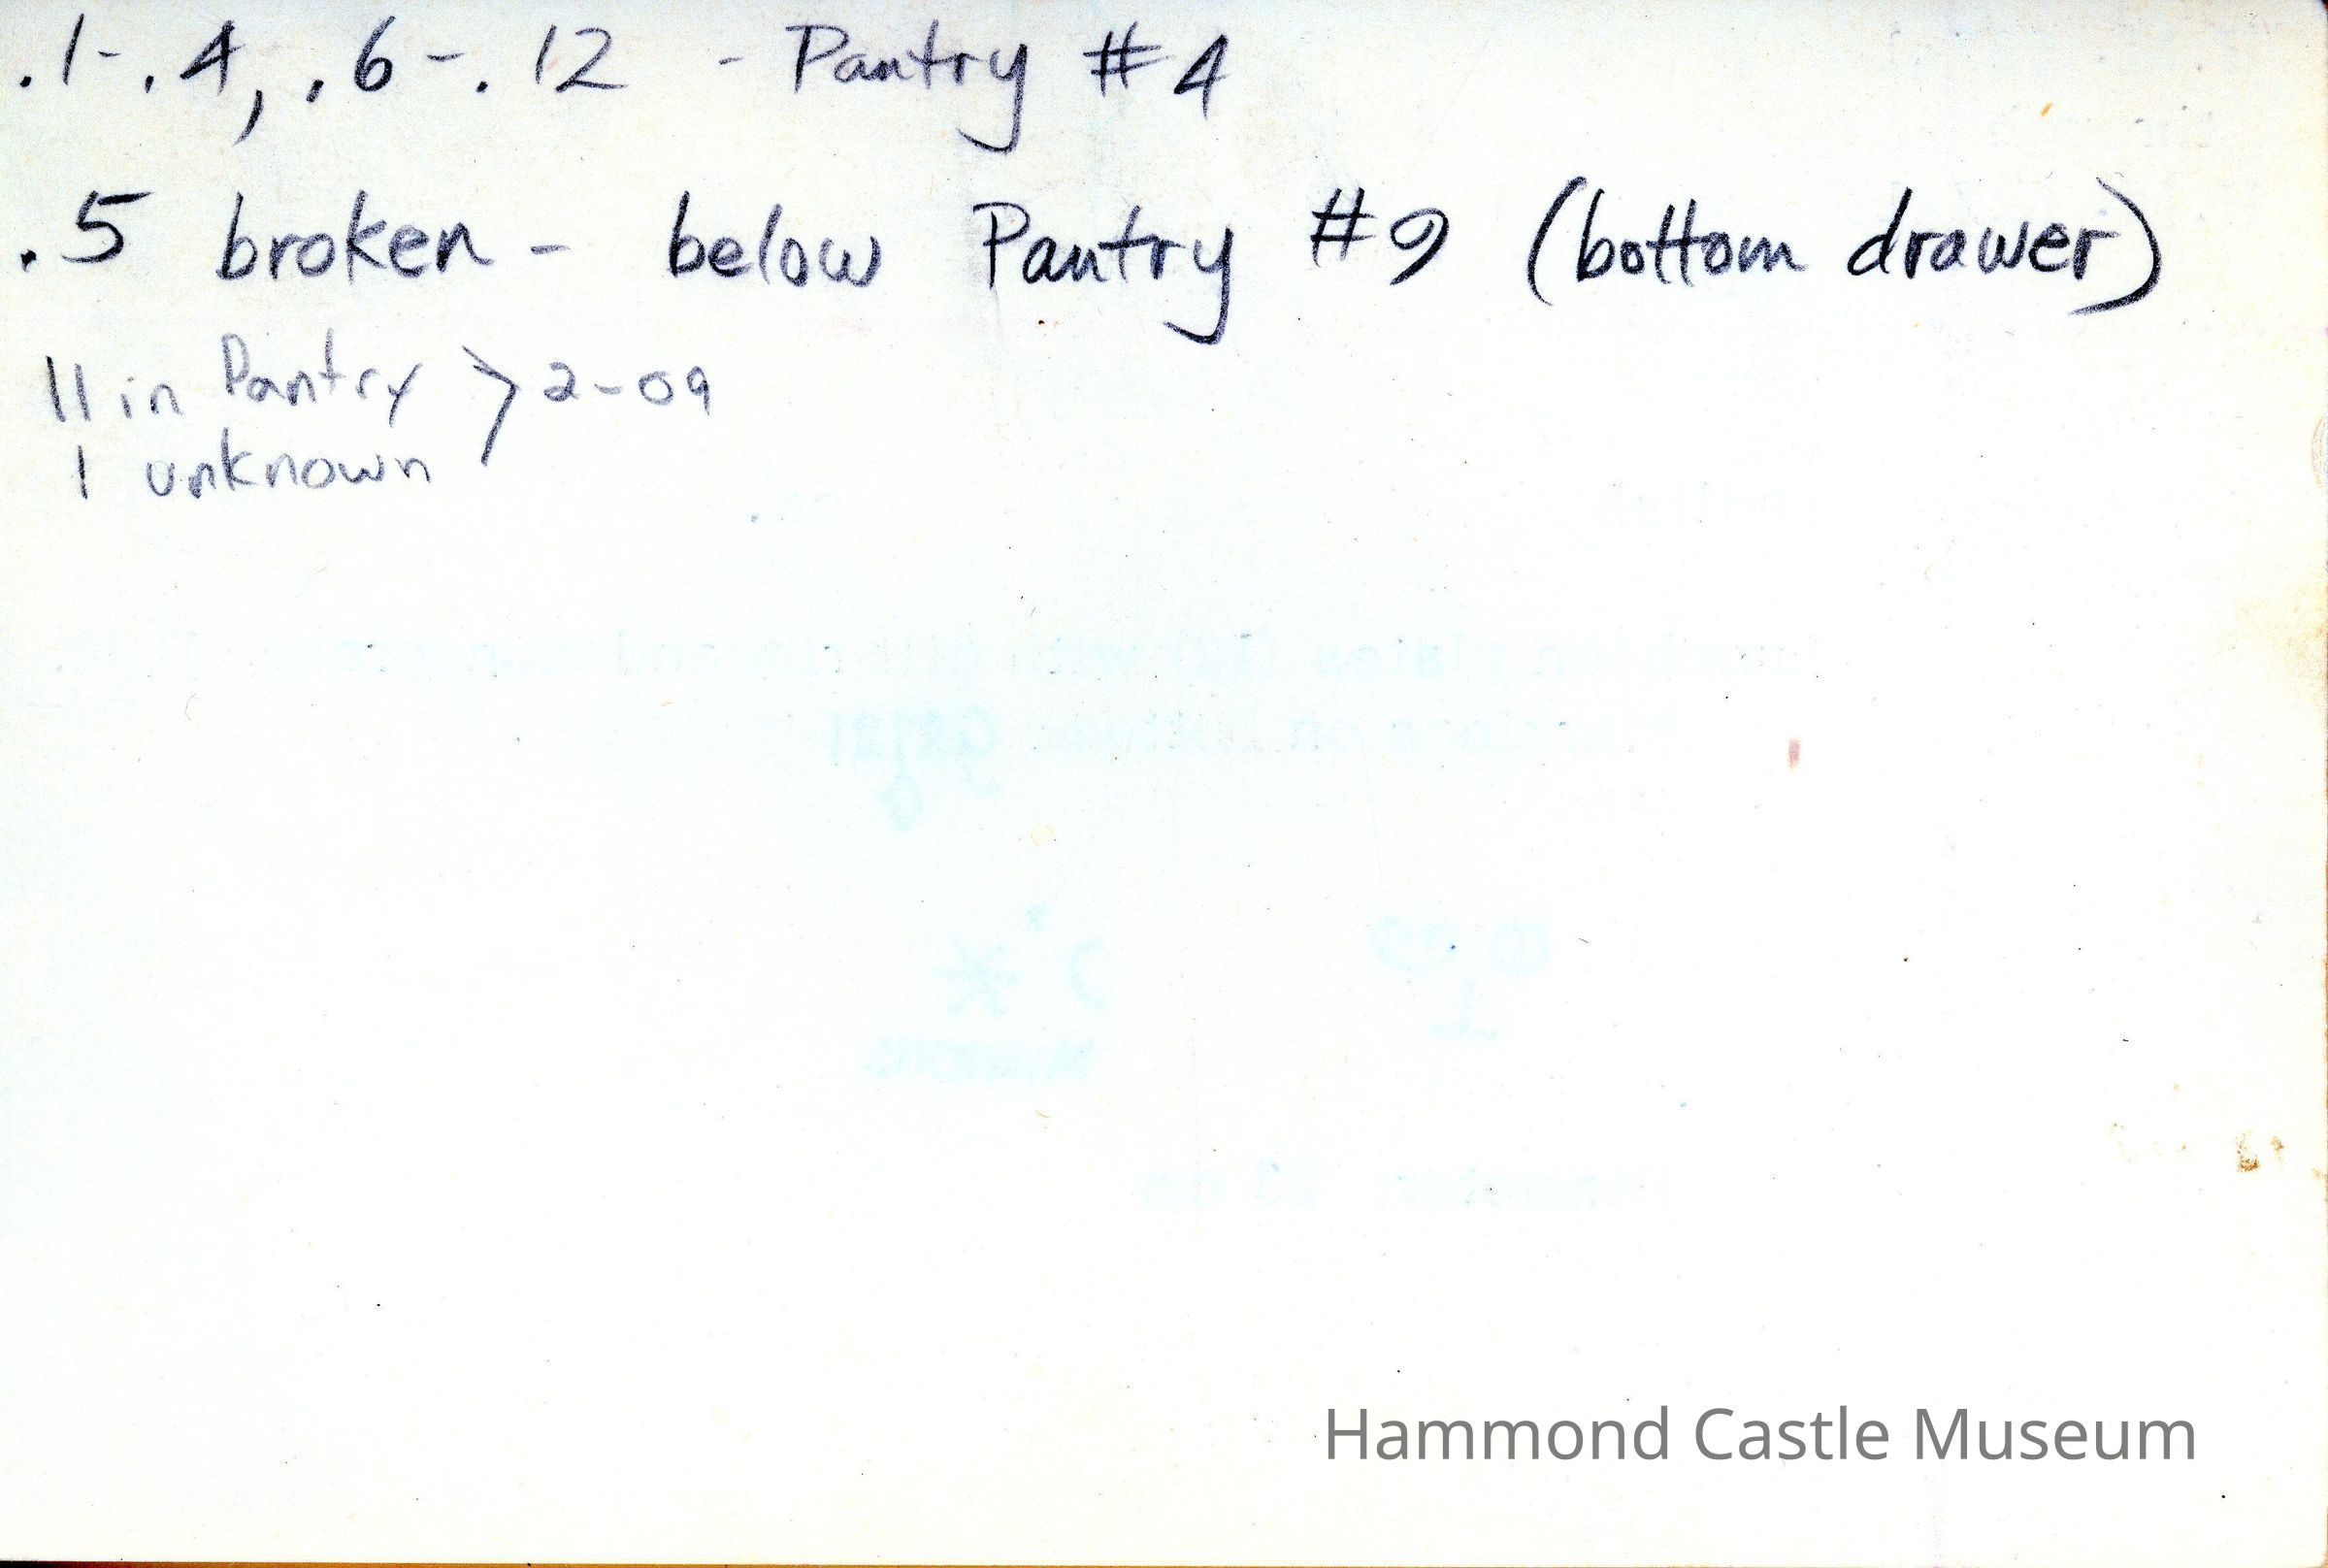 .1-.4, .6-.12 - Pantry #4
.5 broken - below Pantry #9 (bottom drawer)
11 in Pantry > 2-09
1 unknown
Hammond Castle Museum